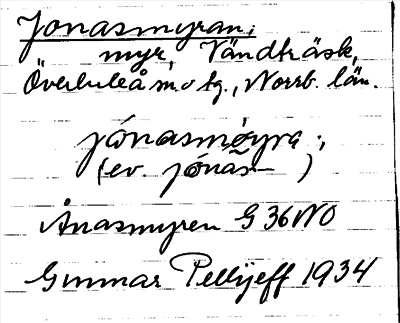 Jonasmyran;
myr, Vändträsk,
Överluleå m. o tg., Norrb. län.
jónasmøyra;
(ev. jónãs- )
Ånasmyren G 36 NO
Gunnar Pellijeff 1934